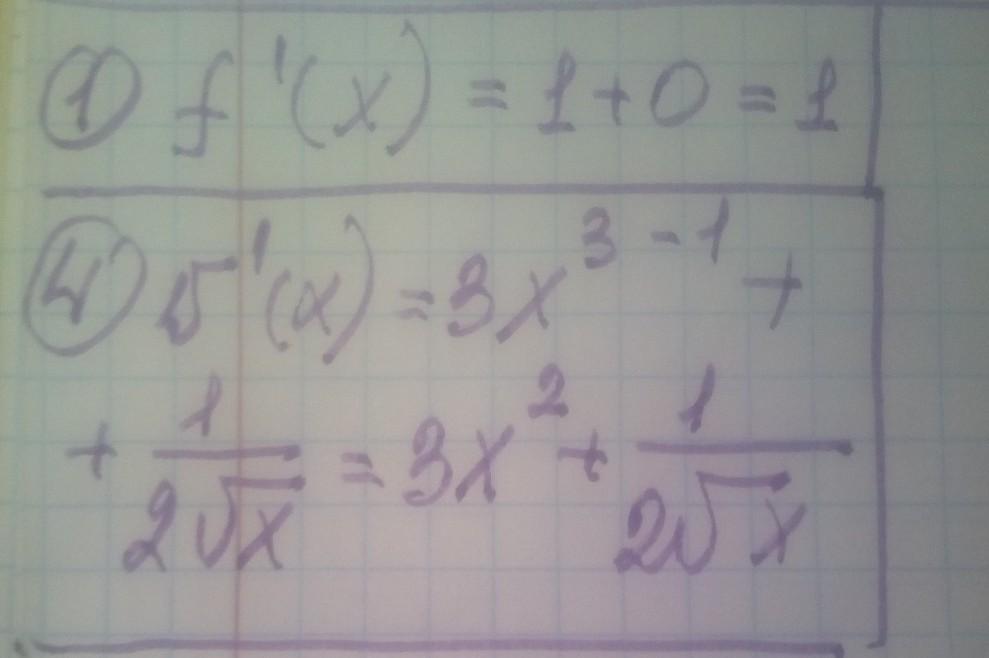 ① f'(x) = 1 + 0 = 1
④ f'(x) = 3x³⁻¹ +
+ 1/(2√x) = 3x² + 1/(2√x)